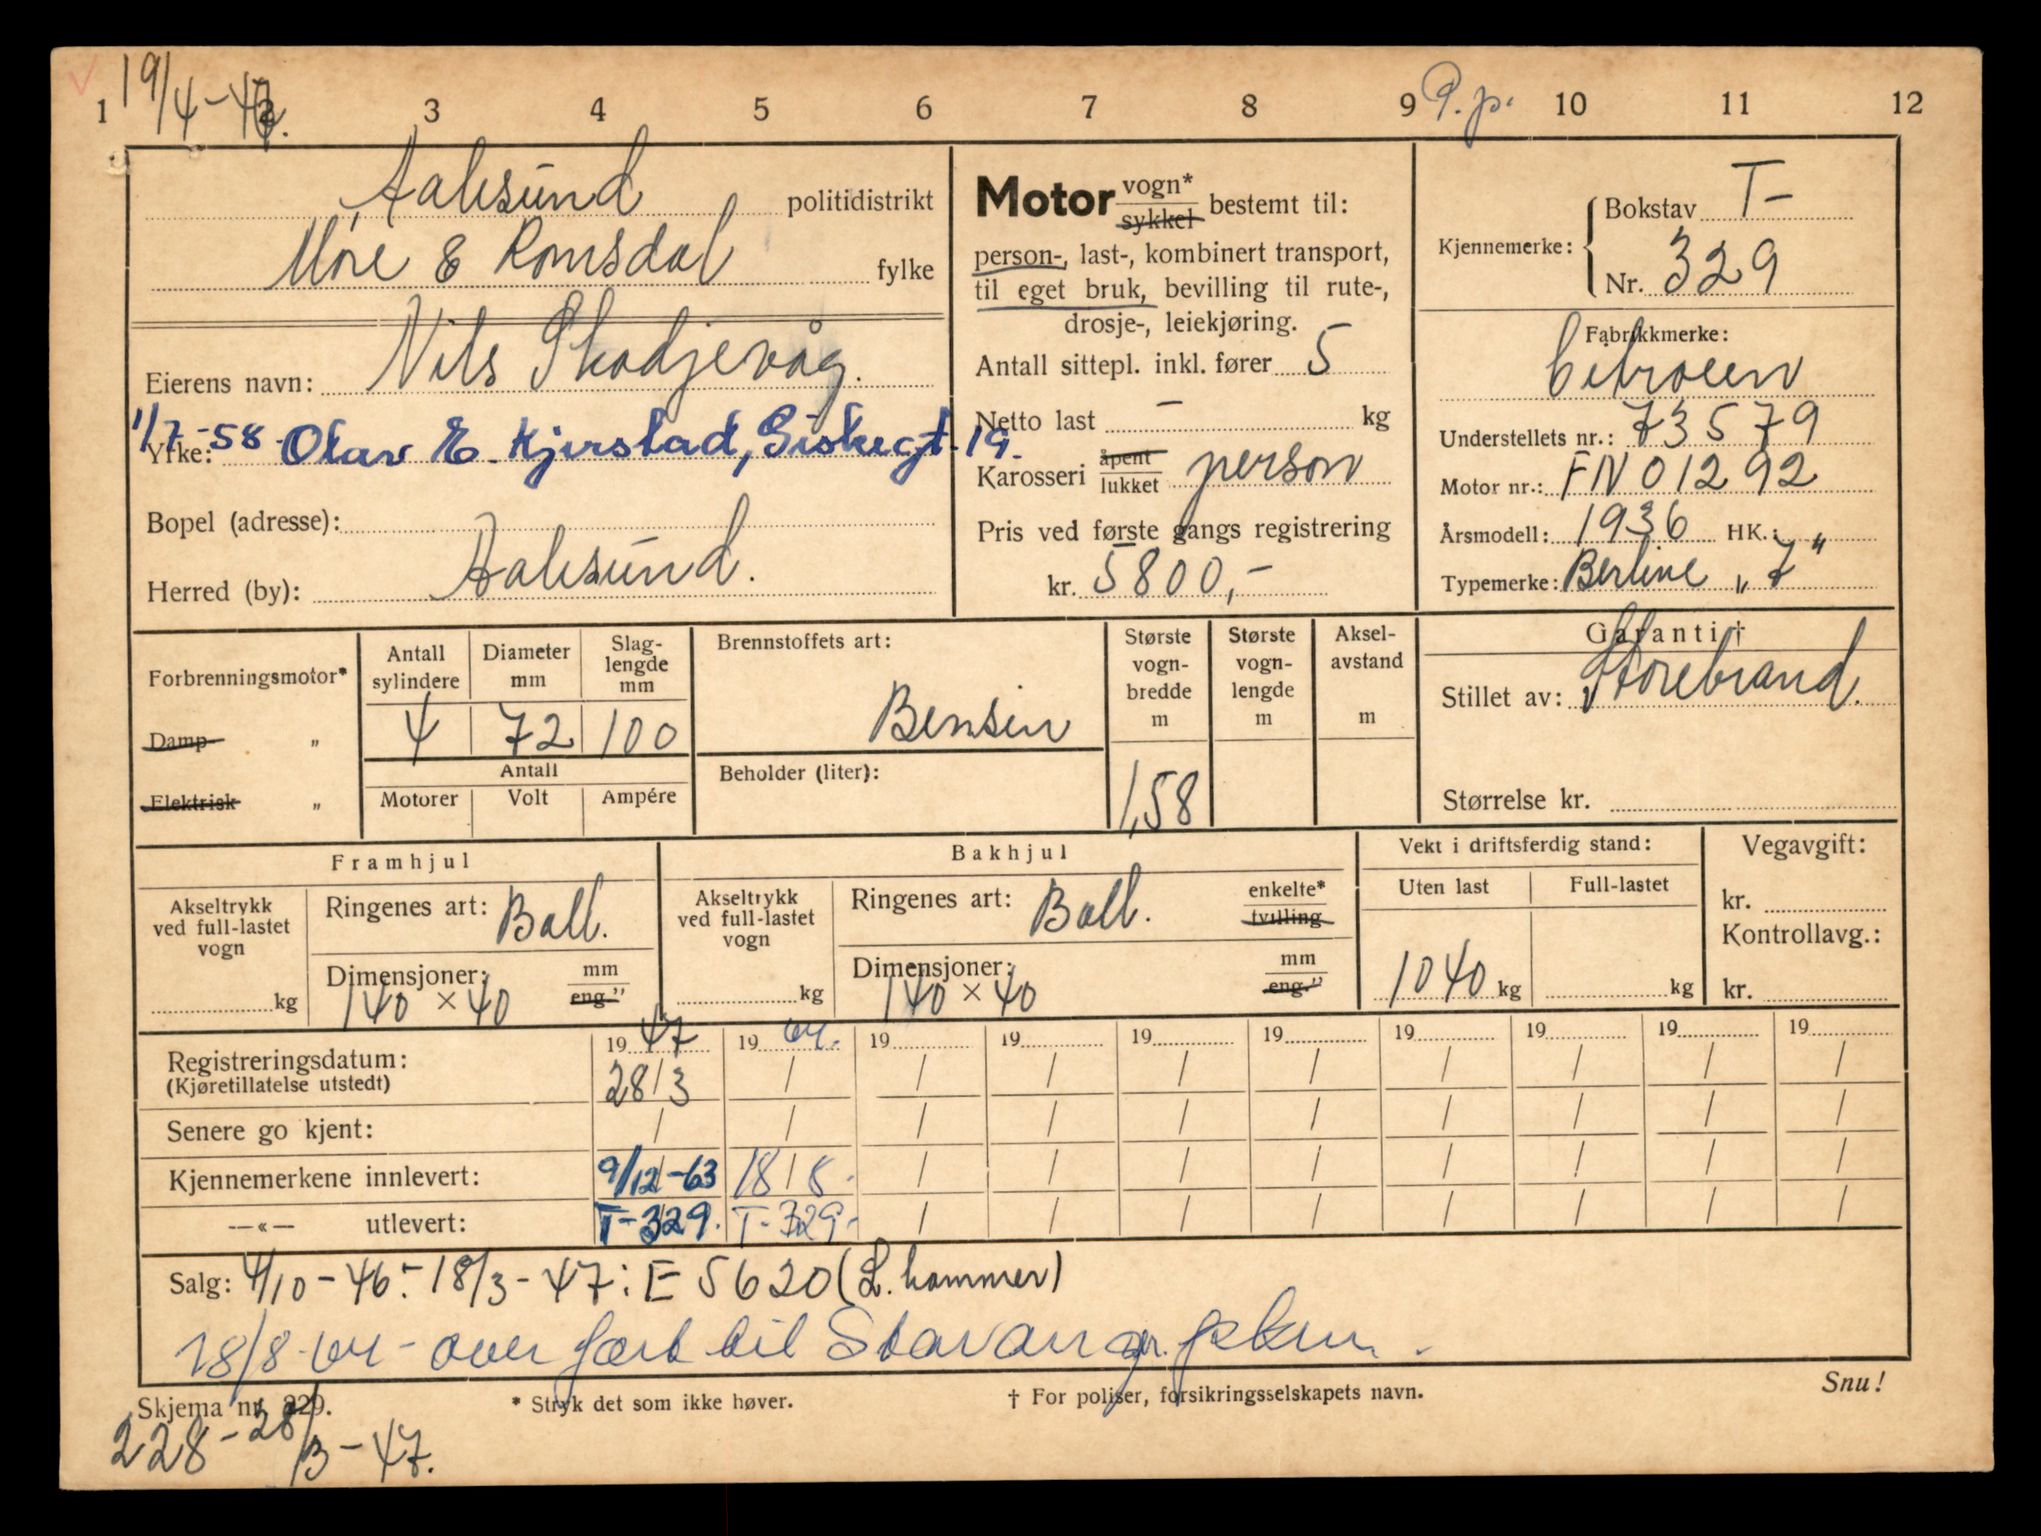 19/4-47.
1 2 3 4 5 6 7 8 9 P.p. 10 11 12
Aalesund politidistrikt
Møre & Romsdal fylke
Eierens navn: Nils Skodjevåg.
1/7-58 Olav E. Kjerstad, Giskegt. 19.
Yrke:
Bopel (adresse):
Herred (by): Aalesund.
Motor vogn* sykkel bestemt til:
person-, last-, kombinert transport,
til eget bruk, bevilling til rute-,
drosje-, leiekjøring.
Antall sittepl. inkl. fører 5
Netto last – kg
Karosseri åpent lukket person
Pris ved første gangs registrering
kr. 5800,-
Kjennemerke: Bokstav T-
Nr. 329
Fabrikkmerke:
Citroen
Understellets nr.: 73579
Motor nr.: FN 01292
Årsmodell: 1936 HK.:
Typemerke: Berline „7"
Forbrenningsmotor*
Damp „
Elektrisk „
Antall sylindere
Diameter mm
Slag-lengde mm
4 72 100
Antall
Motorer Volt Ampére
Brennstoffets art:
Bensin
Beholder (liter):
Største vogn-bredde m
1,58
Største vogn-lengde m
Aksel-avstand m
Garanti †
Stillet av: Storebrand.
Størrelse kr.
Framhjul
Akseltrykk ved full-lastet vogn
kg
Ringenes art: Ball.
Dimensjoner: mm eng."
140 × 40
Bakhjul
Akseltrykk ved full-lastet vogn
kg
Ringenes art: Ball. enkelte* tvilling
Dimensjoner: mm eng."
140 × 40
Vekt i driftsferdig stand:
Uten last Full-lastet
1040 kg kg
Vegavgift:
kr.
Kontrollavg.:
kr.
19 47 19 64. 19 19 19 19 19 19 19 19
Registreringsdatum: 28/3 / / / / / / / / /
(Kjøretillatelse utstedt)
Senere go kjent: / / / / / / / / / /
Kjennemerkene innlevert: 9/12-63 18/8. / / / / / / / /
—«— utlevert: T-329. T-329- / / / / / / / /
Salg: 4/10-46:- 18/3-47: E 5620 (L. hammer)
18/8-64 - over ført til Stavanger.
Skjema nr. 229.
* Stryk det som ikke høver.
† For poliser, forsikringsselskapets navn.
Snu!
228-28/3-47.